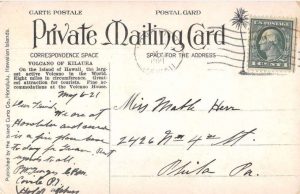 CARTE POSTALE POSTAL CARD
Private Mailing Card
CORRESPONDENCE SPACE SPACE FOR THE ADDRESS
VOLCANO OF KILAUEA
On the Island of Hawaii, the larg-
est active Volcano in the World.
Eight miles in circumference. Great-
est attraction for tourists. Fine ac-
commodations at the Volcano House.
Published by the Island Curio Co., Honolulu, Hawaiian Islands.
May 6-21
Dear Friend, We are at
Honolulu and
is a fine place
to day for
to all.
Miss Mable Herr
2426 N 4th St
Phila Pa.
1 CENT 1